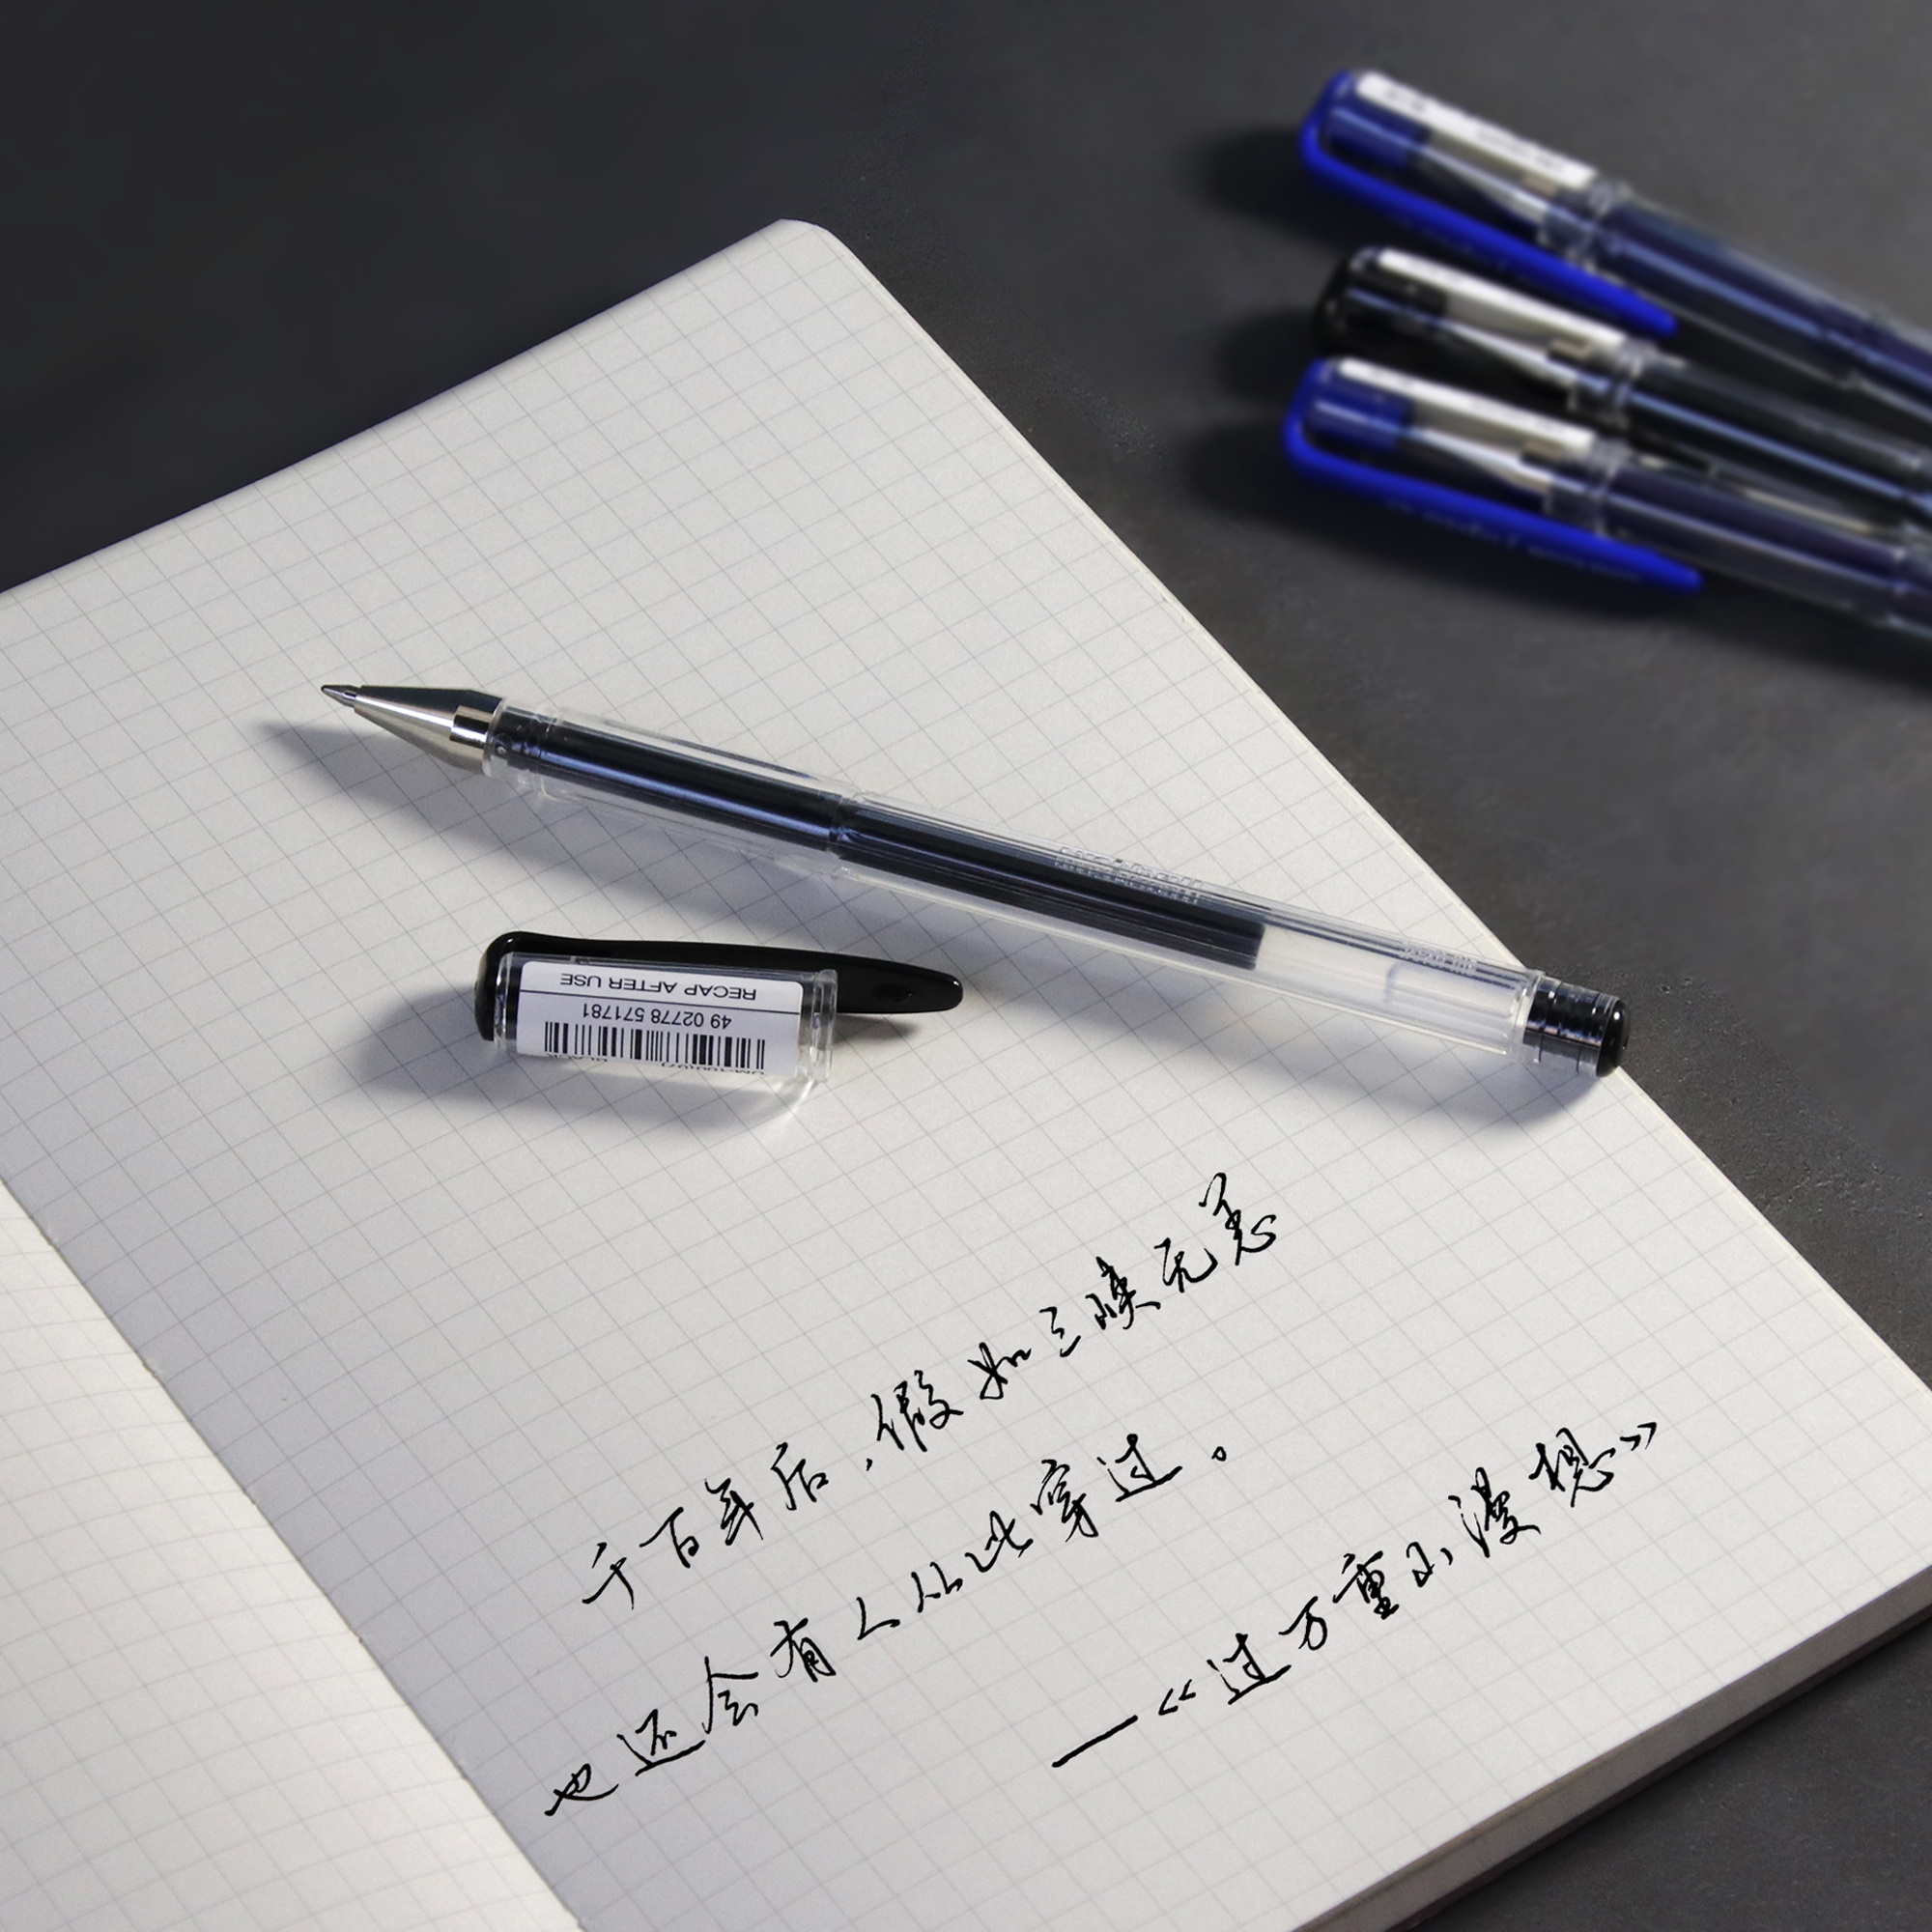 RECAP AFTER USE
49 02778 571781
千百年后，假如三峡无恙
也还会有人从此穿过。
—《过万重山漫想》